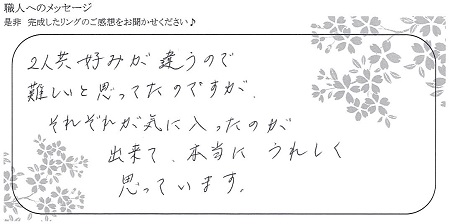 職人へのメッセージ
是非 完成したリングのご感想をお聞かせください♪
2人共好みが違うので
難しいと思ってたのですが、
それぞれが気に入ったのが
出来て、本当にうれしく
思っています。